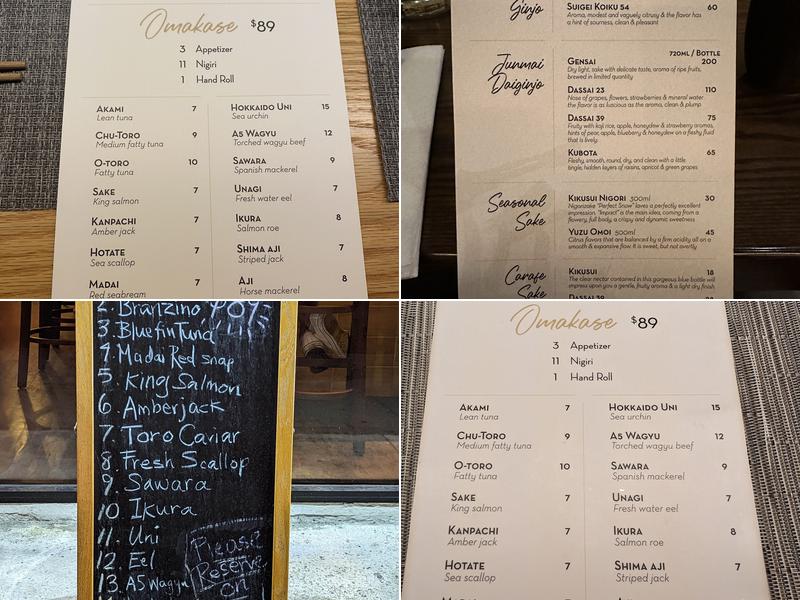 Omakase $89
3 Appetizer
11 Nigiri
1 Hand Roll
AKAMI 7
Lean tuna
CHU-TORO 9
Medium fatty tuna
O-TORO 10
Fatty tuna
SAKE 7
King salmon
KANPACHI 7
Amber jack
HOTATE 7
Sea scallop
MADAI 7
Red seabream
HOKKAIDO UNI 15
Sea urchin
A5 WAGYU 12
Torched wagyu beef
SAWARA 9
Spanish mackerel
UNAGI 7
Fresh water eel
IKURA 8
Salmon roe
SHIMA AJI 7
Striped jack
AJI 8
Horse mackerel
Ginjo
SUIGEI KOIKU 54 60
Aroma, modest and vaguely citrusy & the flavor has
a hint of sourness, clean & pleasant
Junmai
Daiginjo
720ML / BOTTLE
GENSAI 200
Dry light, sake with delicate taste, aroma of ripe fruits,
brewed in limited quantity
DASSAI 23 110
Nose of grapes, flowers, strawberries & mineral water
the flavor is as luscious as the aroma, clean & plump
DASSAI 39 75
Fruity with koji rice, apple, honeydew & strawberry aromas,
hints of pear, apple, blueberry & honeydew on a fleshy fluid
that is lively
KUBOTA 65
Fleshy, smooth, round, dry, and clean with a little
tingle, hidden layers of raisins, apricot & green grapes
Seasonal
Sake
KIKUSUI NIGORI 300ml 30
Nigorizake "Perfect Snow" leaves a perfectly excellent
impression. "Impact" is the main idea, coming from a
flowery, full body, a crispy and dynamic sweetness
YUZU OMOI 500ml 45
Citrus flavors that are balanced by a firm acidity all on a
smooth & expansive flow. It is sweet, but not overtly
Carafe
Sake
KIKUSUI 18
The clear nectar contained in this gorgeous blue bottle will
impress upon you a gentle, fruity aroma & a light dry finish
DASSAI 39
2. Branzino
3. Bluefin Tuna
4. Madai Red snap
5. King Salmon
6. Amberjack
7. Toro Caviar
8. Fresh Scallop
9. Sawara
10 Ikura
11. Uni
12. Eel
13. A5 Wagyu
Please
Reserve
on
Omakase $89
3 Appetizer
11 Nigiri
1 Hand Roll
AKAMI 7
Lean tuna
CHU-TORO 9
Medium fatty tuna
O-TORO 10
Fatty tuna
SAKE 7
King salmon
KANPACHI 7
Amber jack
HOTATE 7
Sea scallop
HOKKAIDO UNI 15
Sea urchin
A5 WAGYU 12
Torched wagyu beef
SAWARA 9
Spanish mackerel
UNAGI 7
Fresh water eel
IKURA 8
Salmon roe
SHIMA AJI 7
Striped jack